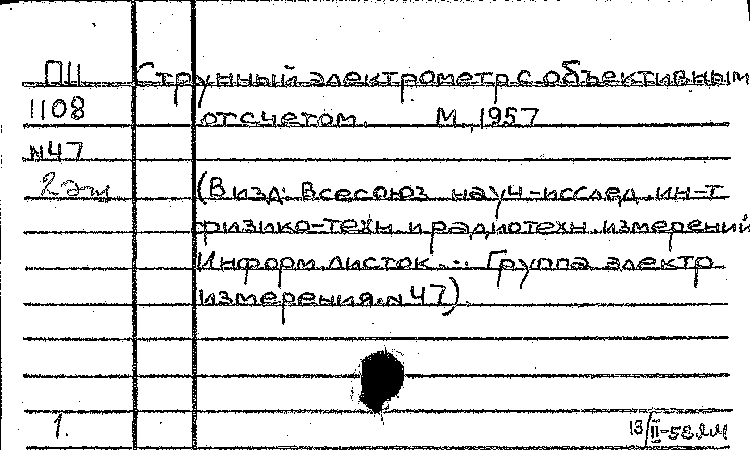 ПЦ Струнный электрометр с объективным
1108 отсчетом. М., 1957
N47
2 эш (В изд: Всесоюз науч-исслед. ин-т
физико-техн. и радиотехн. измерений
Информ. листок... Группа электр
измерения. N 47).
1. 13/II-58